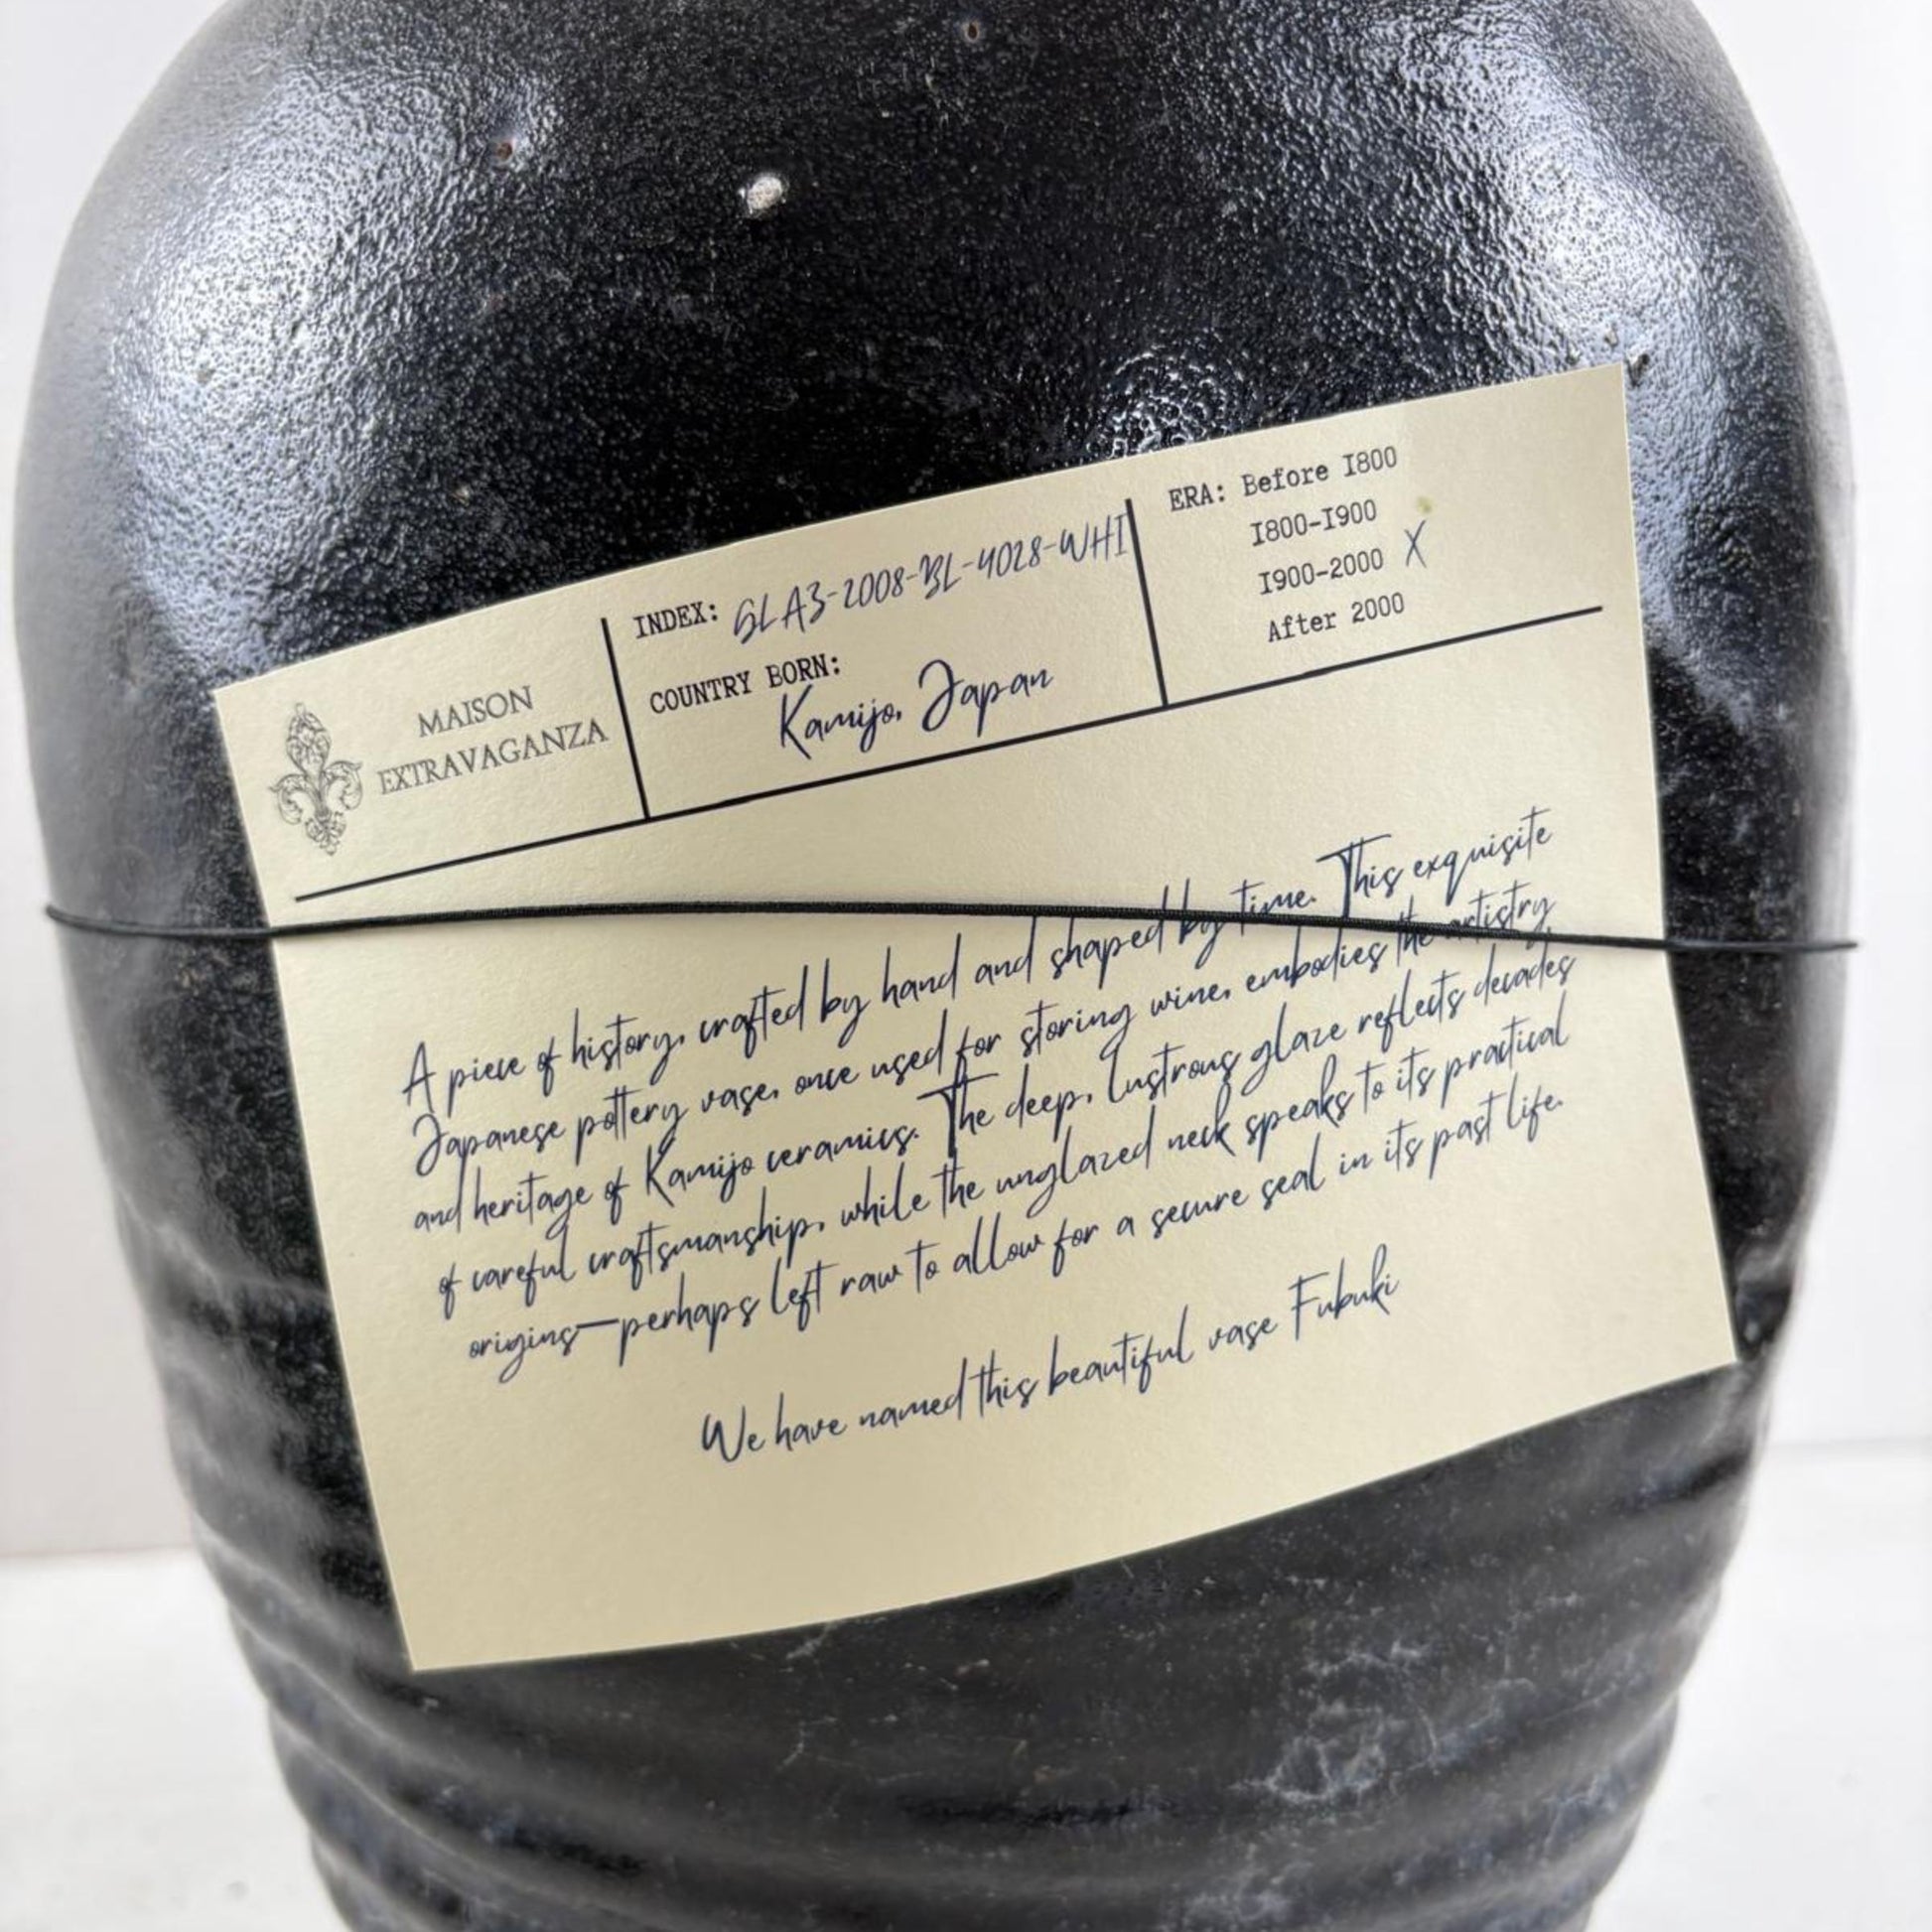 MAISON
EXTRAVAGANZA
INDEX: GLA3-2008-BL-4028-WHI
COUNTRY BORN:
Kamijo, Japan
ERA: Before I800
I800-I900
I900-2000 X
After 2000
A piece of history, crafted by hand and shaped by time. This exquisite
Japanese pottery vase, once used for storing wine, embodies the artistry
and heritage of Kamijo ceramics. The deep, lustrous glaze reflects decades
of careful craftsmanship, while the unglazed neck speaks to its practical
origins—perhaps left raw to allow for a secure seal in its past life.
We have named this beautiful vase Fubuki